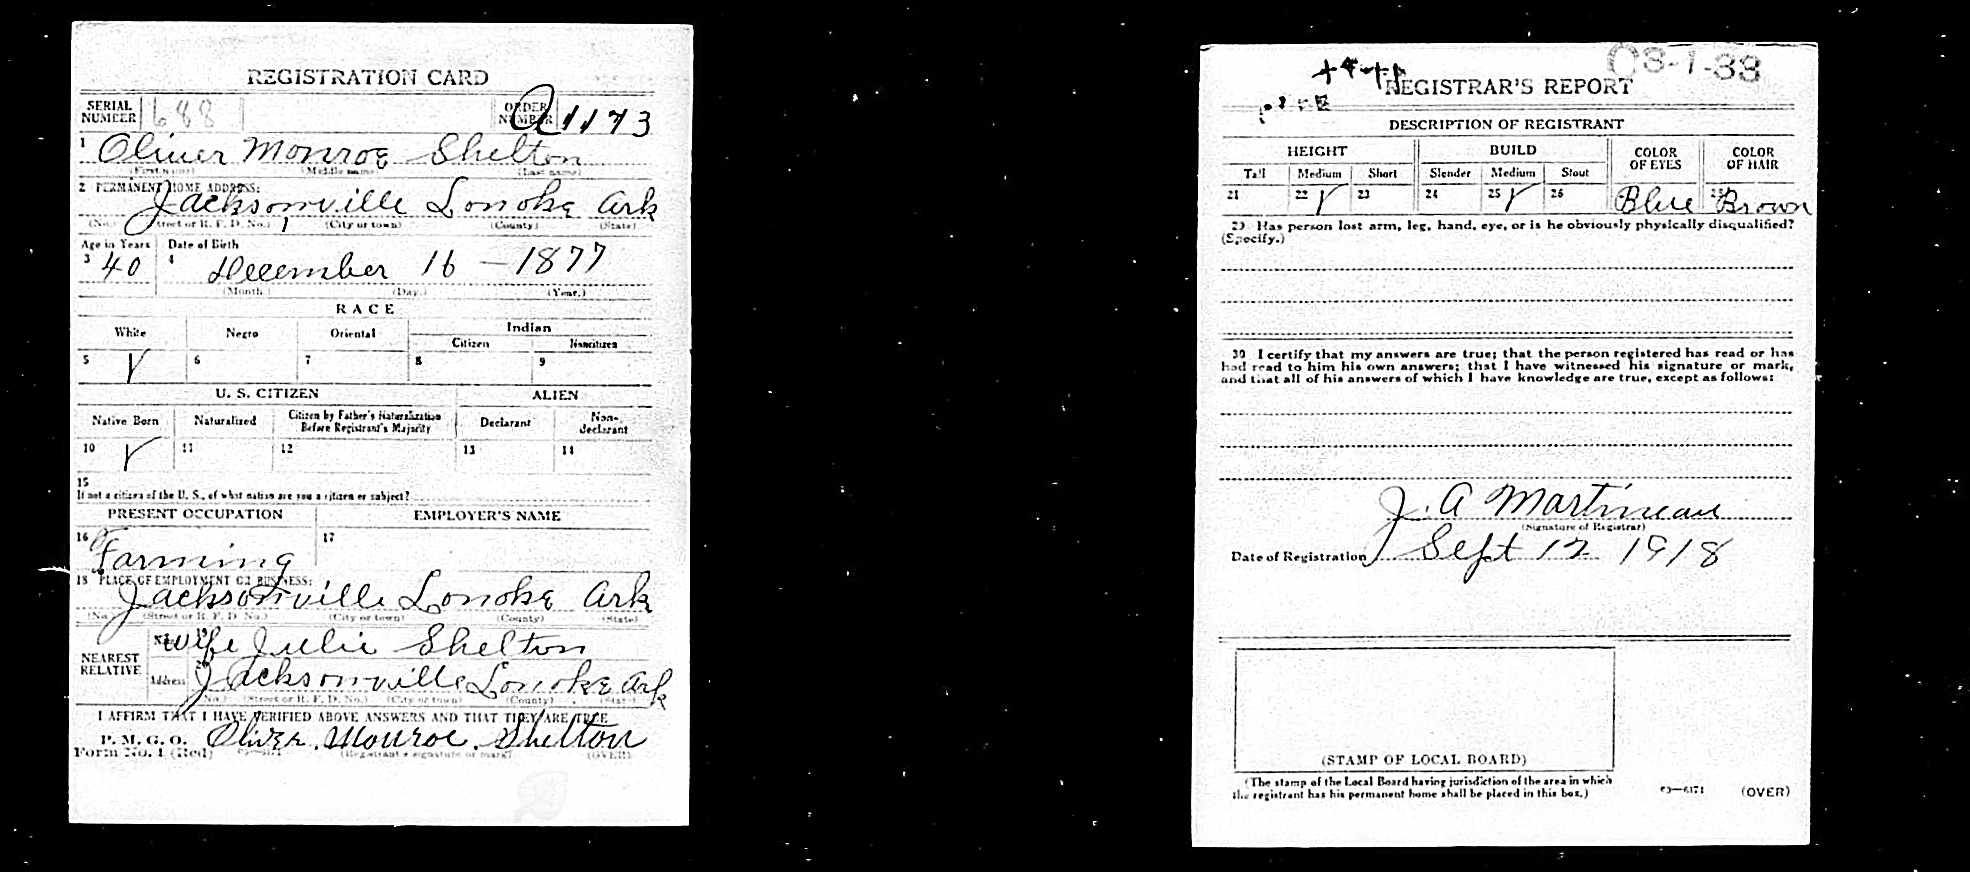 REGISTRATION CARD
SERIAL NUMBER 688 ORDER NUMBER A1173
1 Oliver Monroe Shelton
(First name) (Middle name) (Last name)
2 PERMANENT HOME ADDRESS:
Jacksonville Lonoke Ark
(No.) (Street or R. F. D. No.) 1 (City or town) (County) (State)
Age in Years Date of Birth
3 40 4 December 16 - 1877
(Month.) (Day.) (Year.)
RACE
White Negro Oriental Indian
Citizen Noncitizen
5 √ 6 7 8 9
U. S. CITIZEN ALIEN
Native Born Naturalized Citizen by Father's Naturalization Before Registrant's Majority Declarant Non-declarant
10 √ 11 12 13 14
15
If not a citizen of the U. S., of what nation are you a citizen or subject?
PRESENT OCCUPATION EMPLOYER'S NAME
16 Farming 17
18 PLACE OF EMPLOYMENT OR BUSINESS:
Jacksonville Lonoke Ark
(No.) (Street or R. F. D. No.) (City or town) (County) (State)
NEAREST RELATIVE Name 19 Wife Julie Shelton
Address 20 Jacksonville Lonoke Ark
(No.) (Street or R. F. D. No.) (City or town) (County) (State)
I AFFIRM THAT I HAVE VERIFIED ABOVE ANSWERS AND THAT THEY ARE TRUE
P. M. G. O.
Form No. 1 (Red) Oliver Monroe Shelton
(Registrant's signature or mark) (OVER)
REGISTRAR'S REPORT
DESCRIPTION OF REGISTRANT
HEIGHT BUILD COLOR OF EYES COLOR OF HAIR
Tall Medium Short Slender Medium Stout
21 22 √ 23 24 25 √ 26 Blue Brown
29 Has person lost arm, leg, hand, eye, or is he obviously physically disqualified?
(Specify.)
30 I certify that my answers are true; that the person registered has read or has
had read to him his own answers; that I have witnessed his signature or mark,
and that all of his answers of which I have knowledge are true, except as follows:
J. A Martineau
(Signature of Registrar)
Date of Registration Sept 12 1918
(STAMP OF LOCAL BOARD)
(The stamp of the Local Board having jurisdiction of the area in which
the registrant has his permanent home shall be placed in this box.)
03—6171 (OVER)